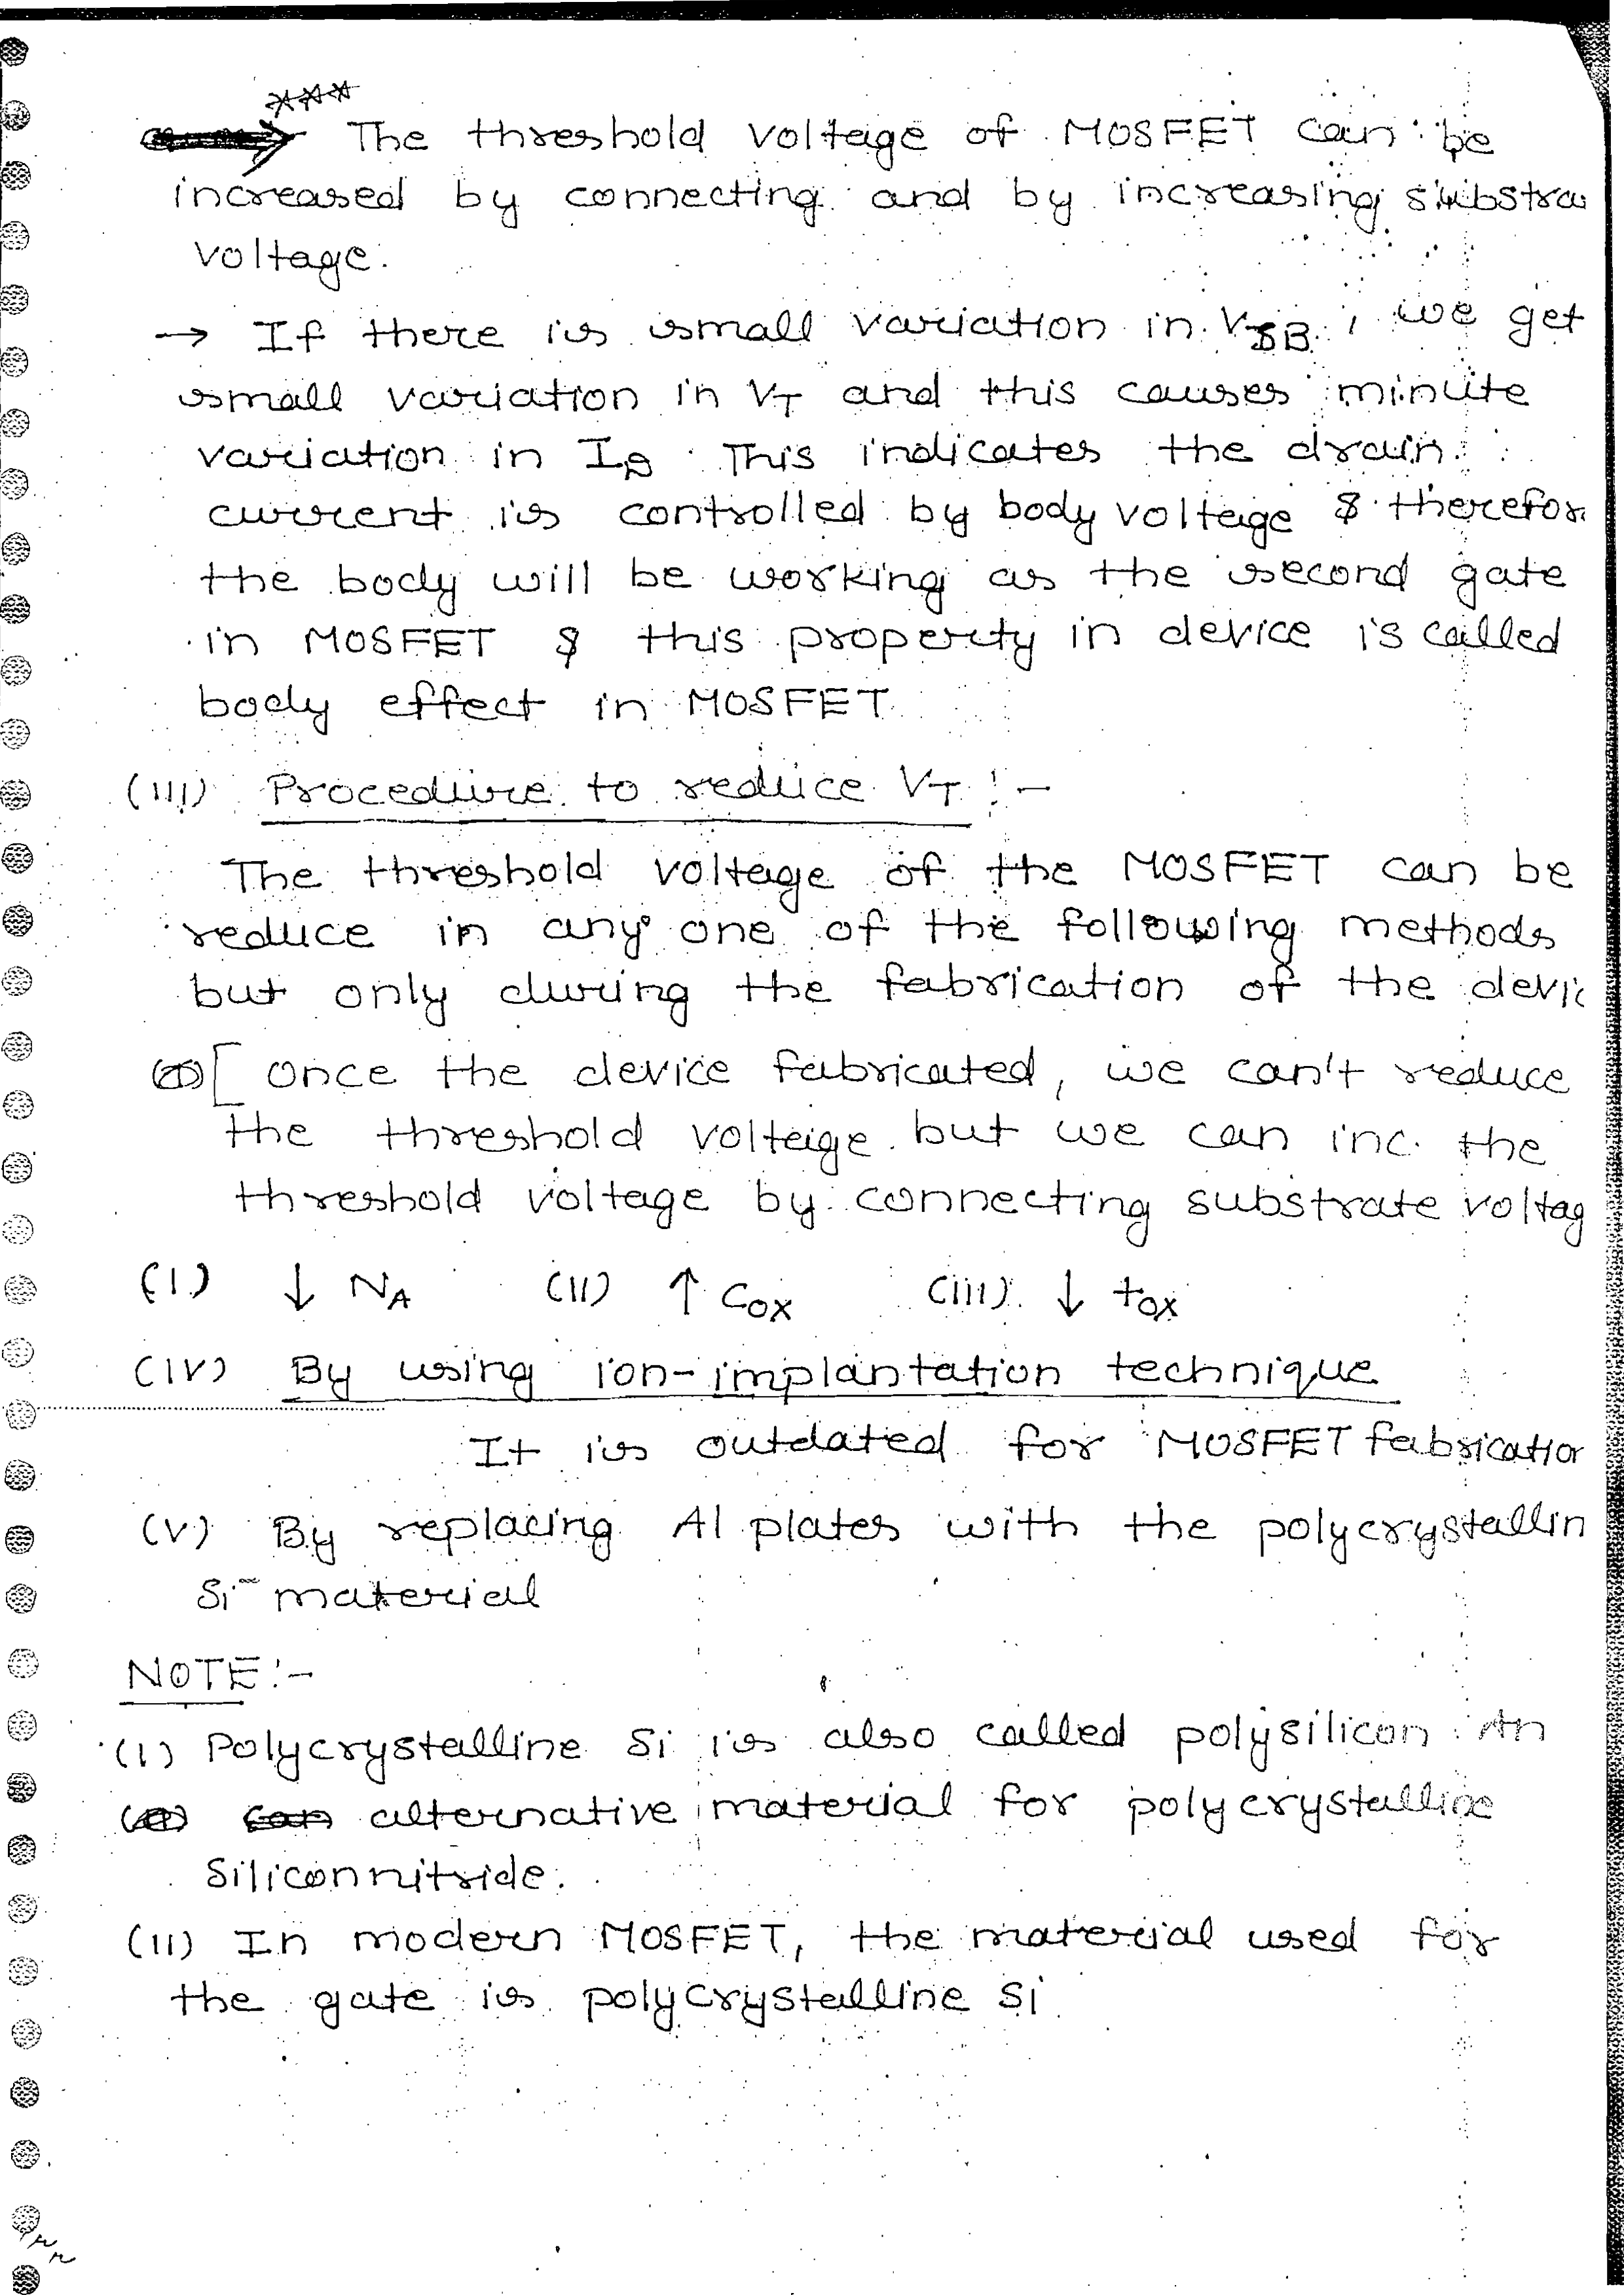 ***
→ The threshold voltage of MOSFET can be
increased by connecting and by increasing substra
voltage.
→ If there is small variation in VSB, we get
small variation in VT and this causes minute
variation in ID. This indicates the drain
current is controlled by body voltage & therefor
the body will be working as the second gate
in MOSFET & this property in device is called
body effect in MOSFET
(III) Procedure to reduce VT :-
The threshold voltage of the MOSFET can be
reduce in any one of the following methods
but only during the fabrication of the devic
[ Once the device fabricated, we can't reduce
the threshold voltage but we can inc. the
threshold voltage by connecting substrate voltag
(I) ↓ NA (II) ↑ Cox (III) ↓ tox
(IV) By using ion-implantation technique
It is outdated for MOSFET fabrication
(V) By replacing Al plates with the polycrystallin
Si material
NOTE:-
(I) Polycrystalline Si is also called polysilicon. An
alternative material for polycrystalline
Siliconnitride.
(II) In modern MOSFET, the material used for
the gate is polycrystalline Si